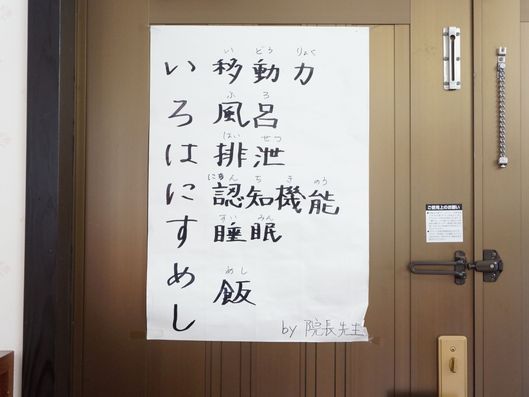 い 移動力
いどうりょく
ろ 風呂
ふろ
は 排泄
はいせつ
に 認知機能
にんちきのう
す 睡眠
すいみん
めし 飯
めし
by 院長先生
ご使用上のお願い